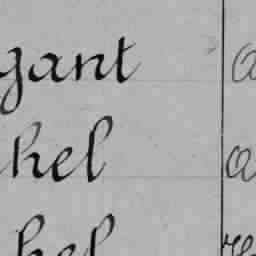 gant a
hel a
hel